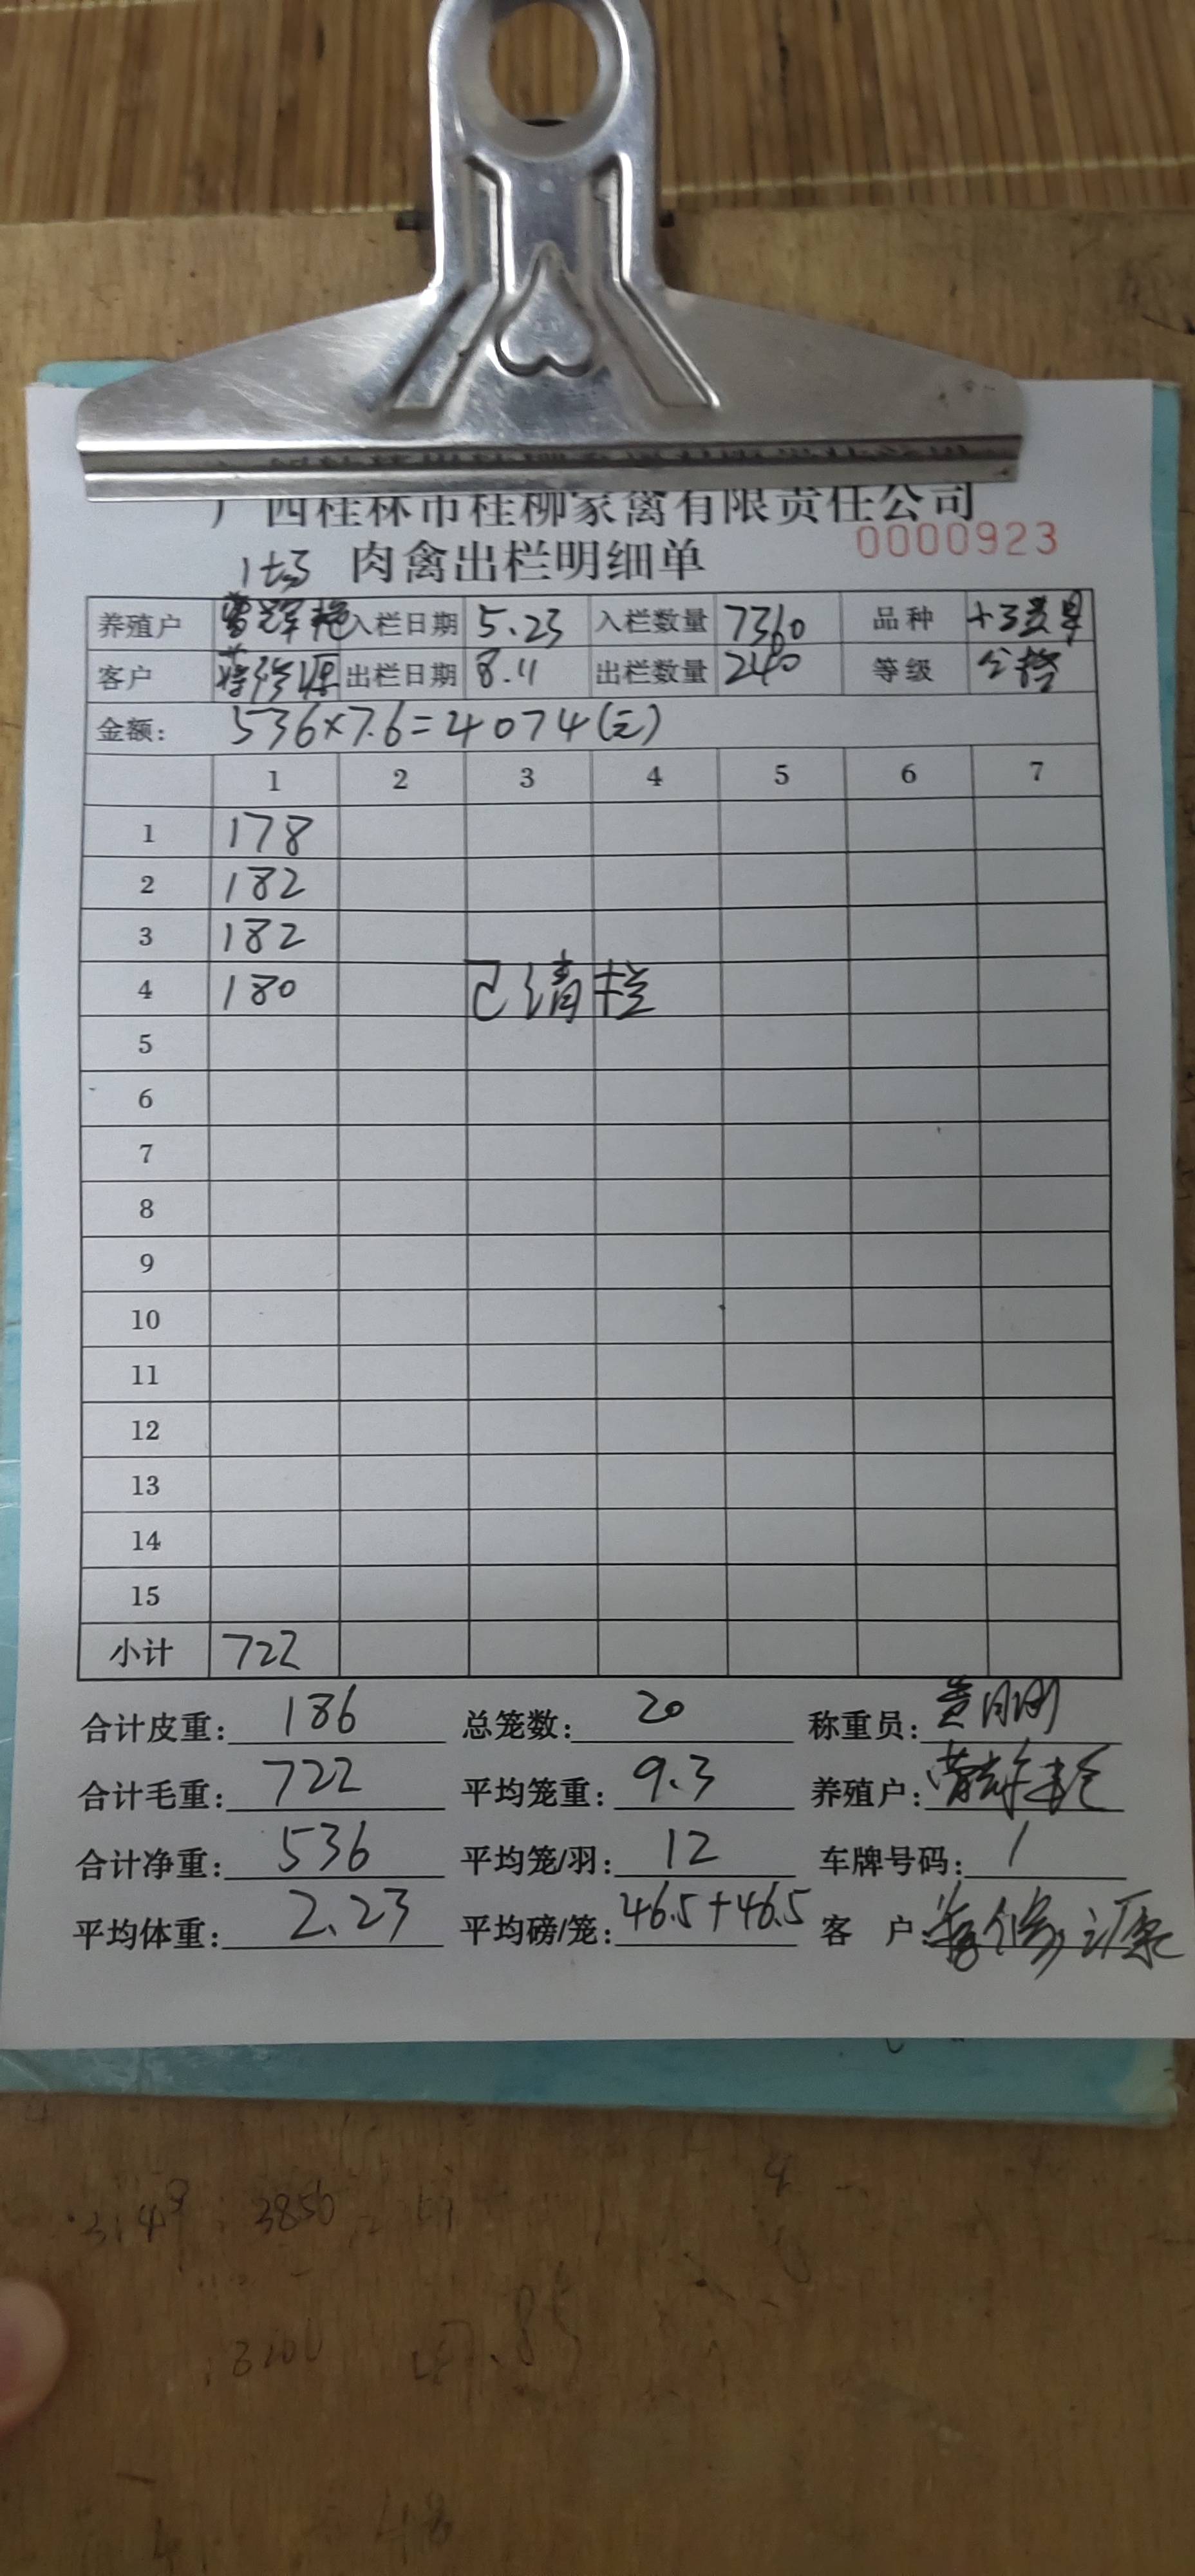 广西桂林市桂柳家禽有限责任公司
1场 肉禽出栏明细单 0000923
养殖户 曾辉艳 入栏日期 5.23 入栏数量 7360 品种
客户 蒋修源 出栏日期 8.11 出栏数量 240 等级
金额: 536×7.6=4074(元)
1 2 3 4 5 6 7
1 178
2 182
3 182
4 180 已清栏
5
6
7
8
9
10
11
12
13
14
15
小计 722
合计皮重: 186 总笼数: 20 称重员:
合计毛重: 722 平均笼重: 9.3 养殖户:
合计净重: 536 平均笼/羽: 12 车牌号码: 1
平均体重: 2.23 平均磅/笼: 46.5+46.5 客 户: 蒋修源
3850